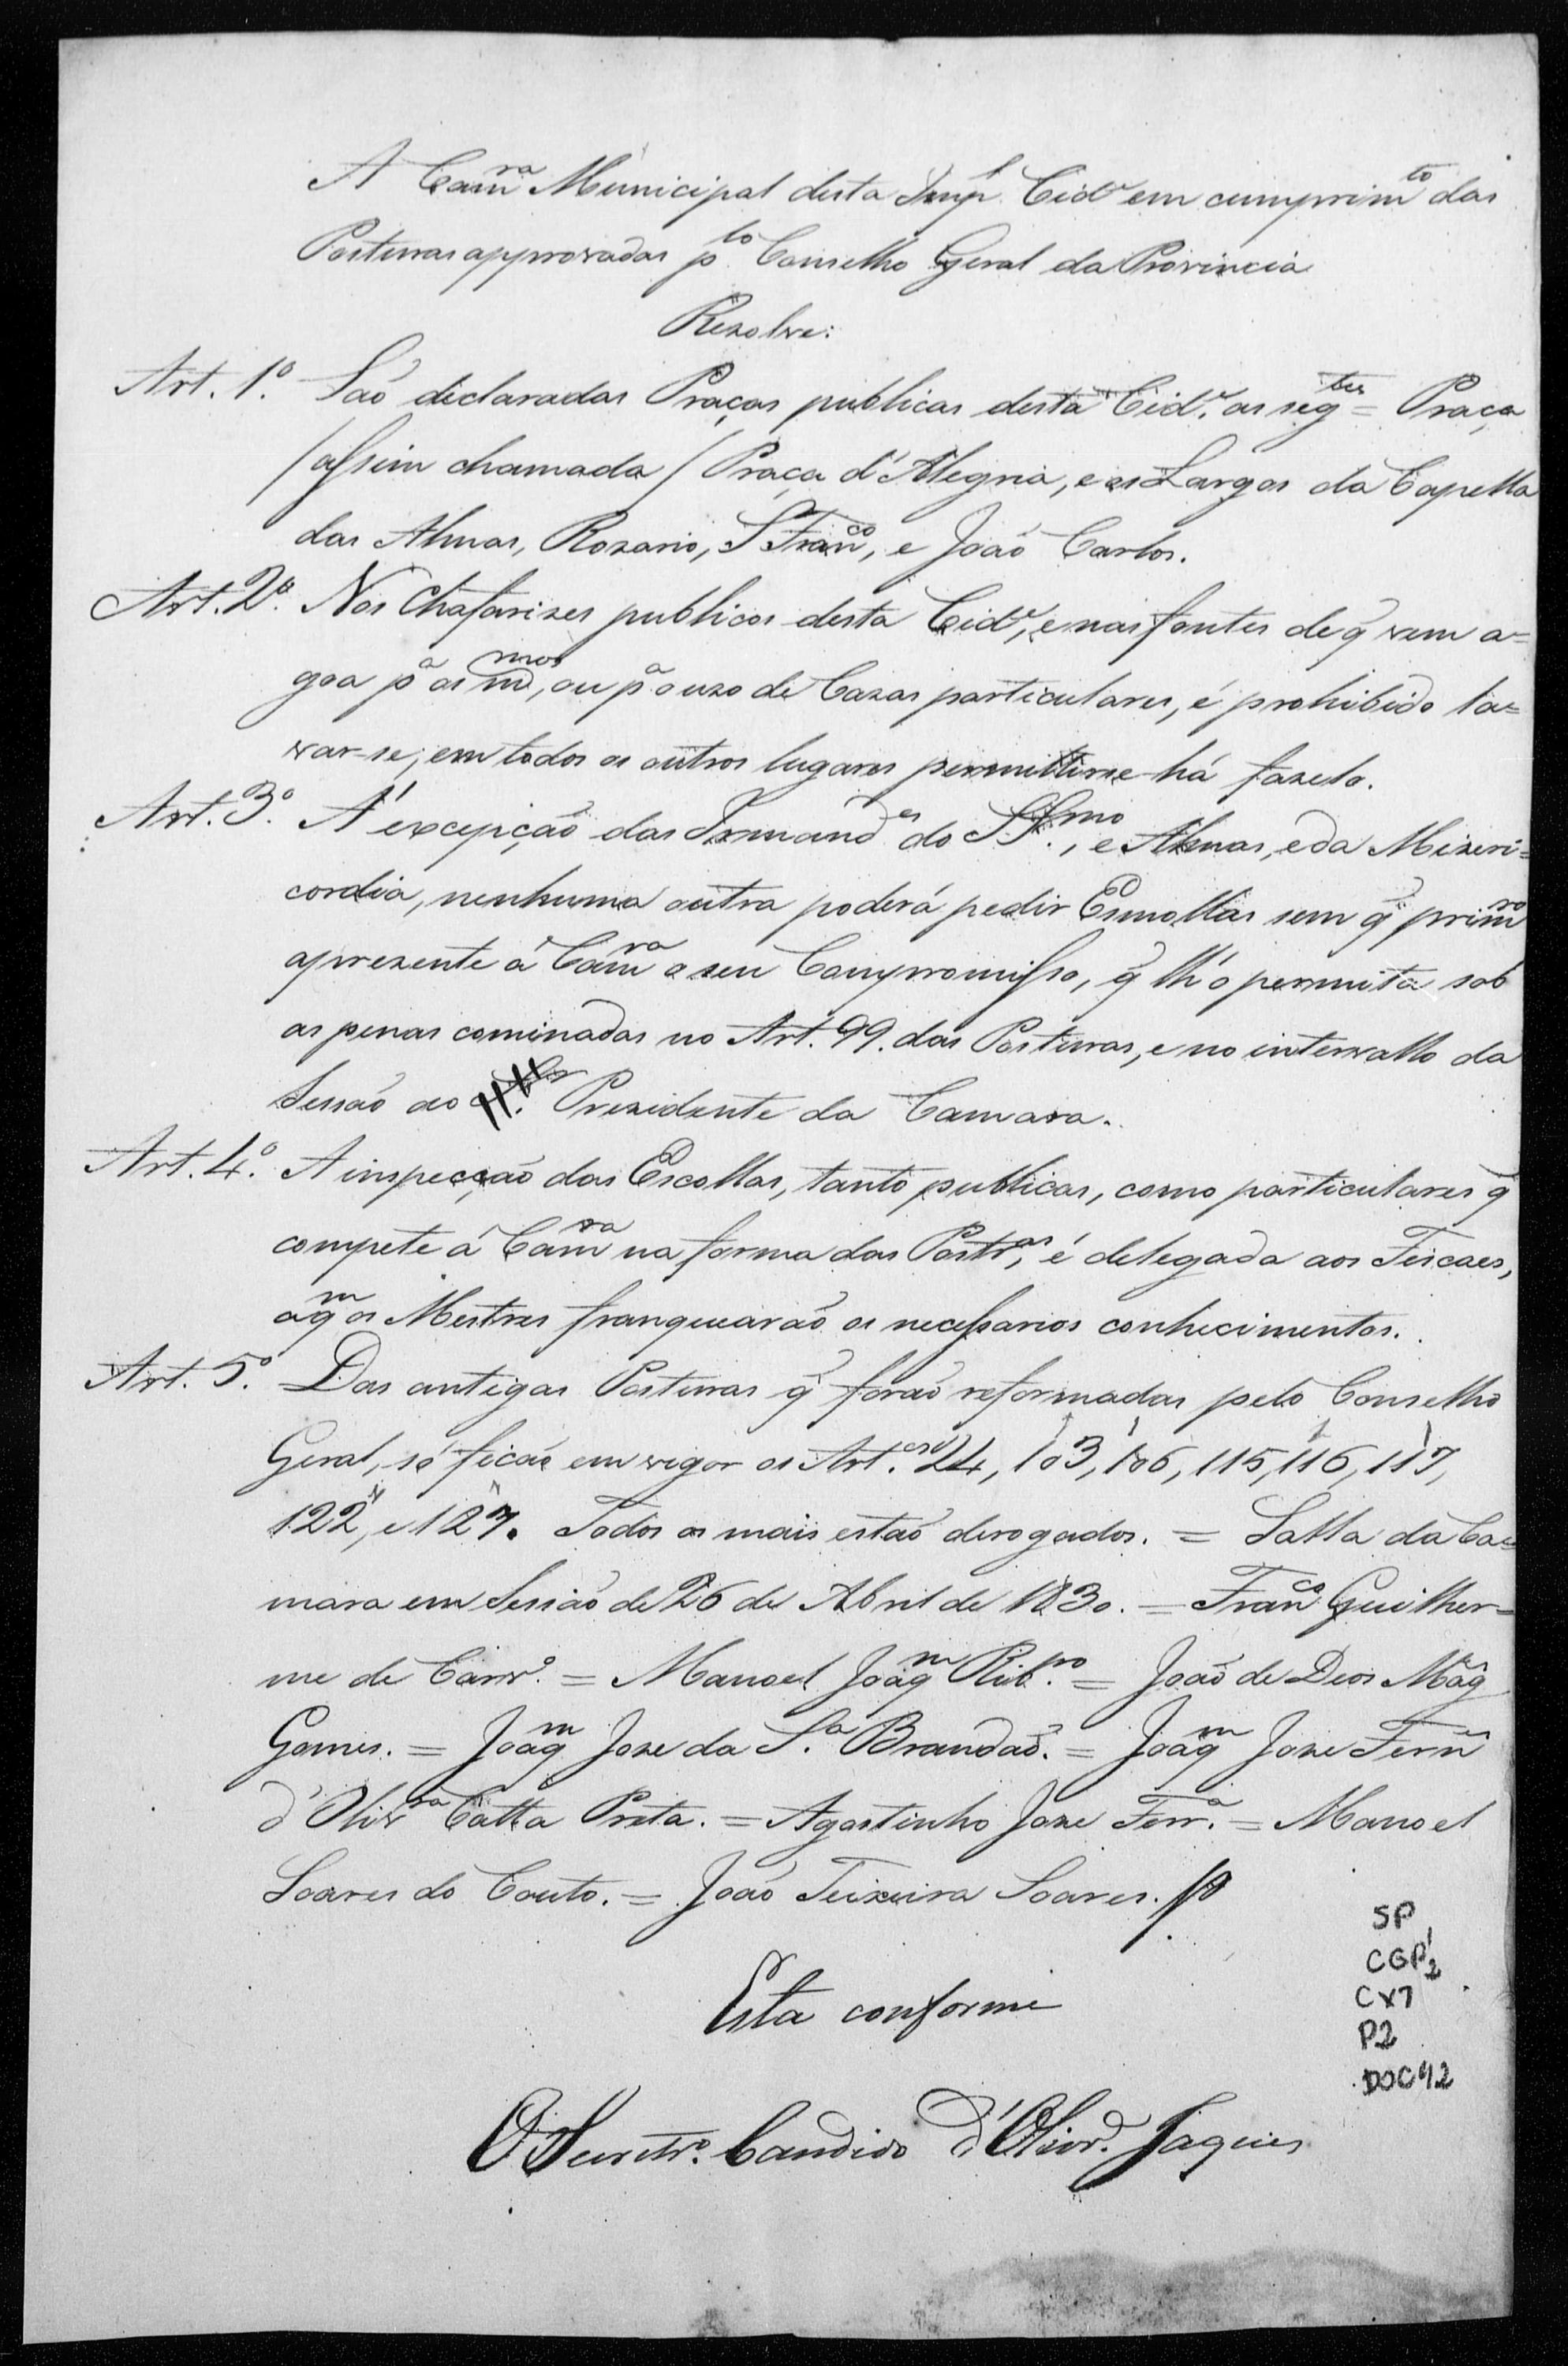 A Camra Municipal desta Impl Cide em cumprimto das
Posturas approvadas plo Conselho Geral da Provincia
Rezolve:
Art. 1º. São declaradas Praças publicas desta Cide. as segtes = Praça
/assim chamada/ Praça d'Alegria, e os Largos da Capella
das Almas, Rozario, S Franco, e João Carlos.
Art. 2º. Nos Chafarizes publicos desta Cide, e nas fontes de q̃ vem a=
goa pa os mmos, ou pa o uzo de Cazas particulares, é prohibido la=
var-se; em todos os outros lugares permittirse-há fazelo.
Art. 3º. A' excepção das Irmandes do SSmo., e Almas, e da Mizeri=
cordia, nenhuma outra poderá pedir Esmollas sem q̃ primro
aprezente á Camra o seu Compromisso, q̃ lh'o permita sob
as penas cominadas no Art. 99. das Posturas, e no intervallo da
Sessão ao Prezidente da Camara.
Art. 4º. A inspecção das Escollas, tanto publicas, como particulares q̃
compete á Camra na forma das Postras, é delegada aos Fiscaes,
a qm os Mestres franquearão os necessarios conhecimentos.
Art. 5º. Das antigas Posturas q̃ forão reformadas pelo Conselho
Geral, só ficão em vigor os Art.es 24, 103, 106, 115, 116, 117,
122, e 127. Todos os mais estão derogados. = Salla da Ca=
mara em Sessão de 26 de Abril de 1830. = Franco Guilher=
me de Carvº. = Manoel Joaqm Ribro. = João de Deos Magẽ
Gomes. = Joaqm Joze da Sa. Brandão. = Joaqm JozeFerñes
d'Olivra Catta Preta. = Agostinho Joze Ferra. = Manoel
Soares do Couto. = João Teixeira Soares.
Esta conforme
O Secretrº. Candido d'Olivra. Jaques
SP
CGP1
2
CX7
P2
DOC42